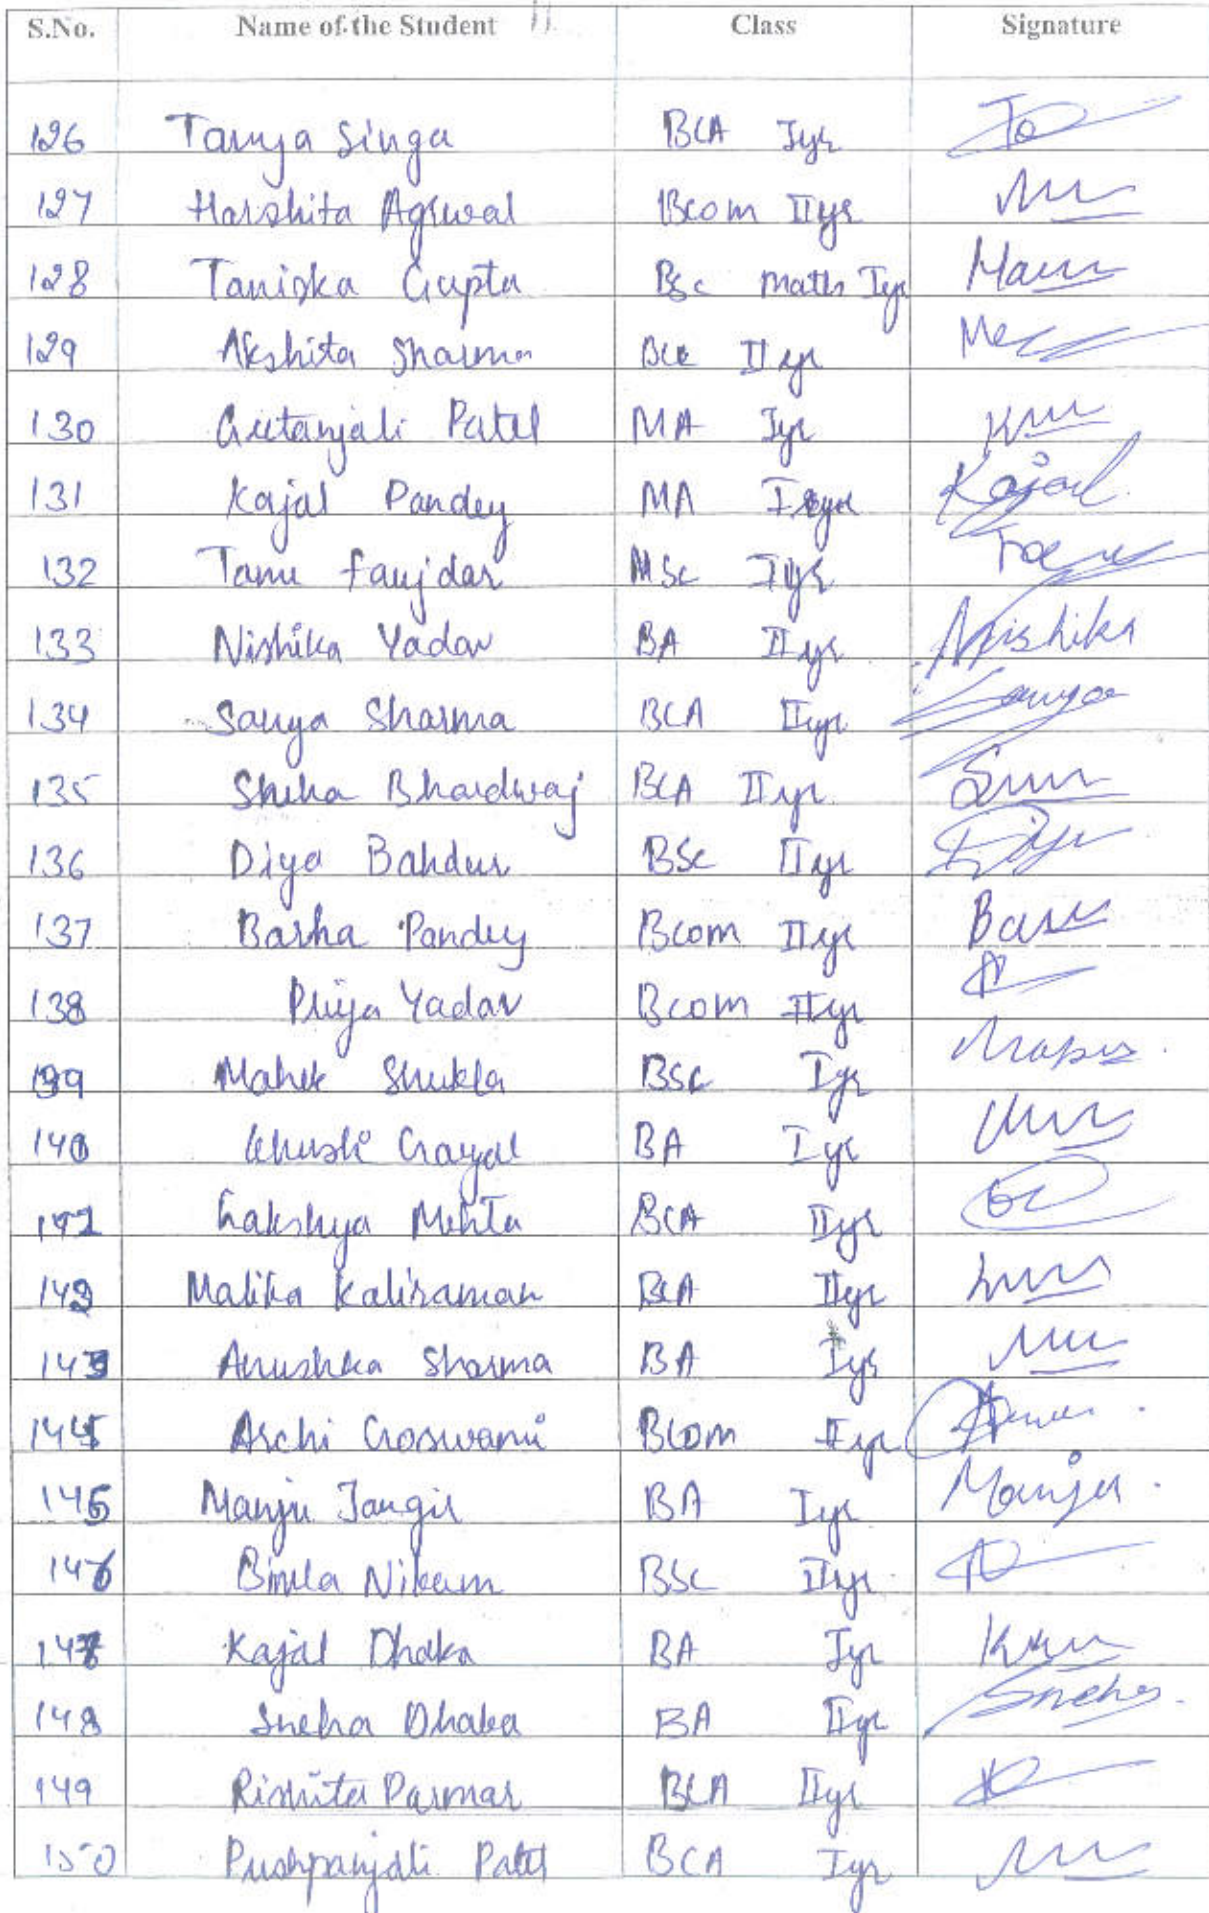 S.No. Name of the Student Class Signature
126 Tanya Singa BCA Iyr
127 Harshita Agrwal Bcom IIyr
128 Taniska Gupta Bsc maths Iyr
129 Akshita Sharma IIyr
130 Gitanjali Patel MA Iyr
131 Kajal Pandey MA Kajal
132 Tanu faujdar MSc
133 Nishika Yadav BA IIyr Nishika
134 Sanya Sharma BCA IIyr Sanya
135 Sneha Bhardwaj BCA IIyr
136 Diya Bahdur BSc IIyr Diya
137 Barha Pandey Bcom IIyr
138 Priya Yadav Bcom IIyr
139 Mahek Shukla BSc Iyr
140 Khushi Goyal BA Iyr
141 Lakshya Mehta BCA IIyr
142 Malika Kaliraman BCA IIyr
143 Anushka Sharma BA Iyr
144 Archi Goswami Bcom
145 Manju Jangir BA Iyr Manju
146 Bimla BSc IIyr
147 Kajal Dhaka BA Iyr
148 Sneha Dhaka BA IIyr Sneha
149 Rishita Parmar BCA IIyr
150 Pushpanjali Patel BCA Iyr